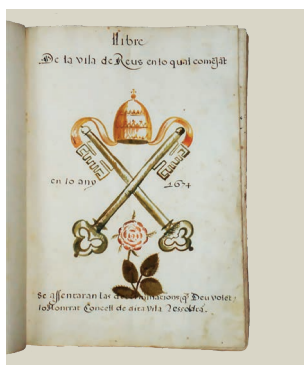 Llibre
De la vila de Reus en lo qual comẽsãt
en lo any 1674
Se assentaran las determinacions q̃ Deu volẽt
lo Honrrat Concell de dita vila